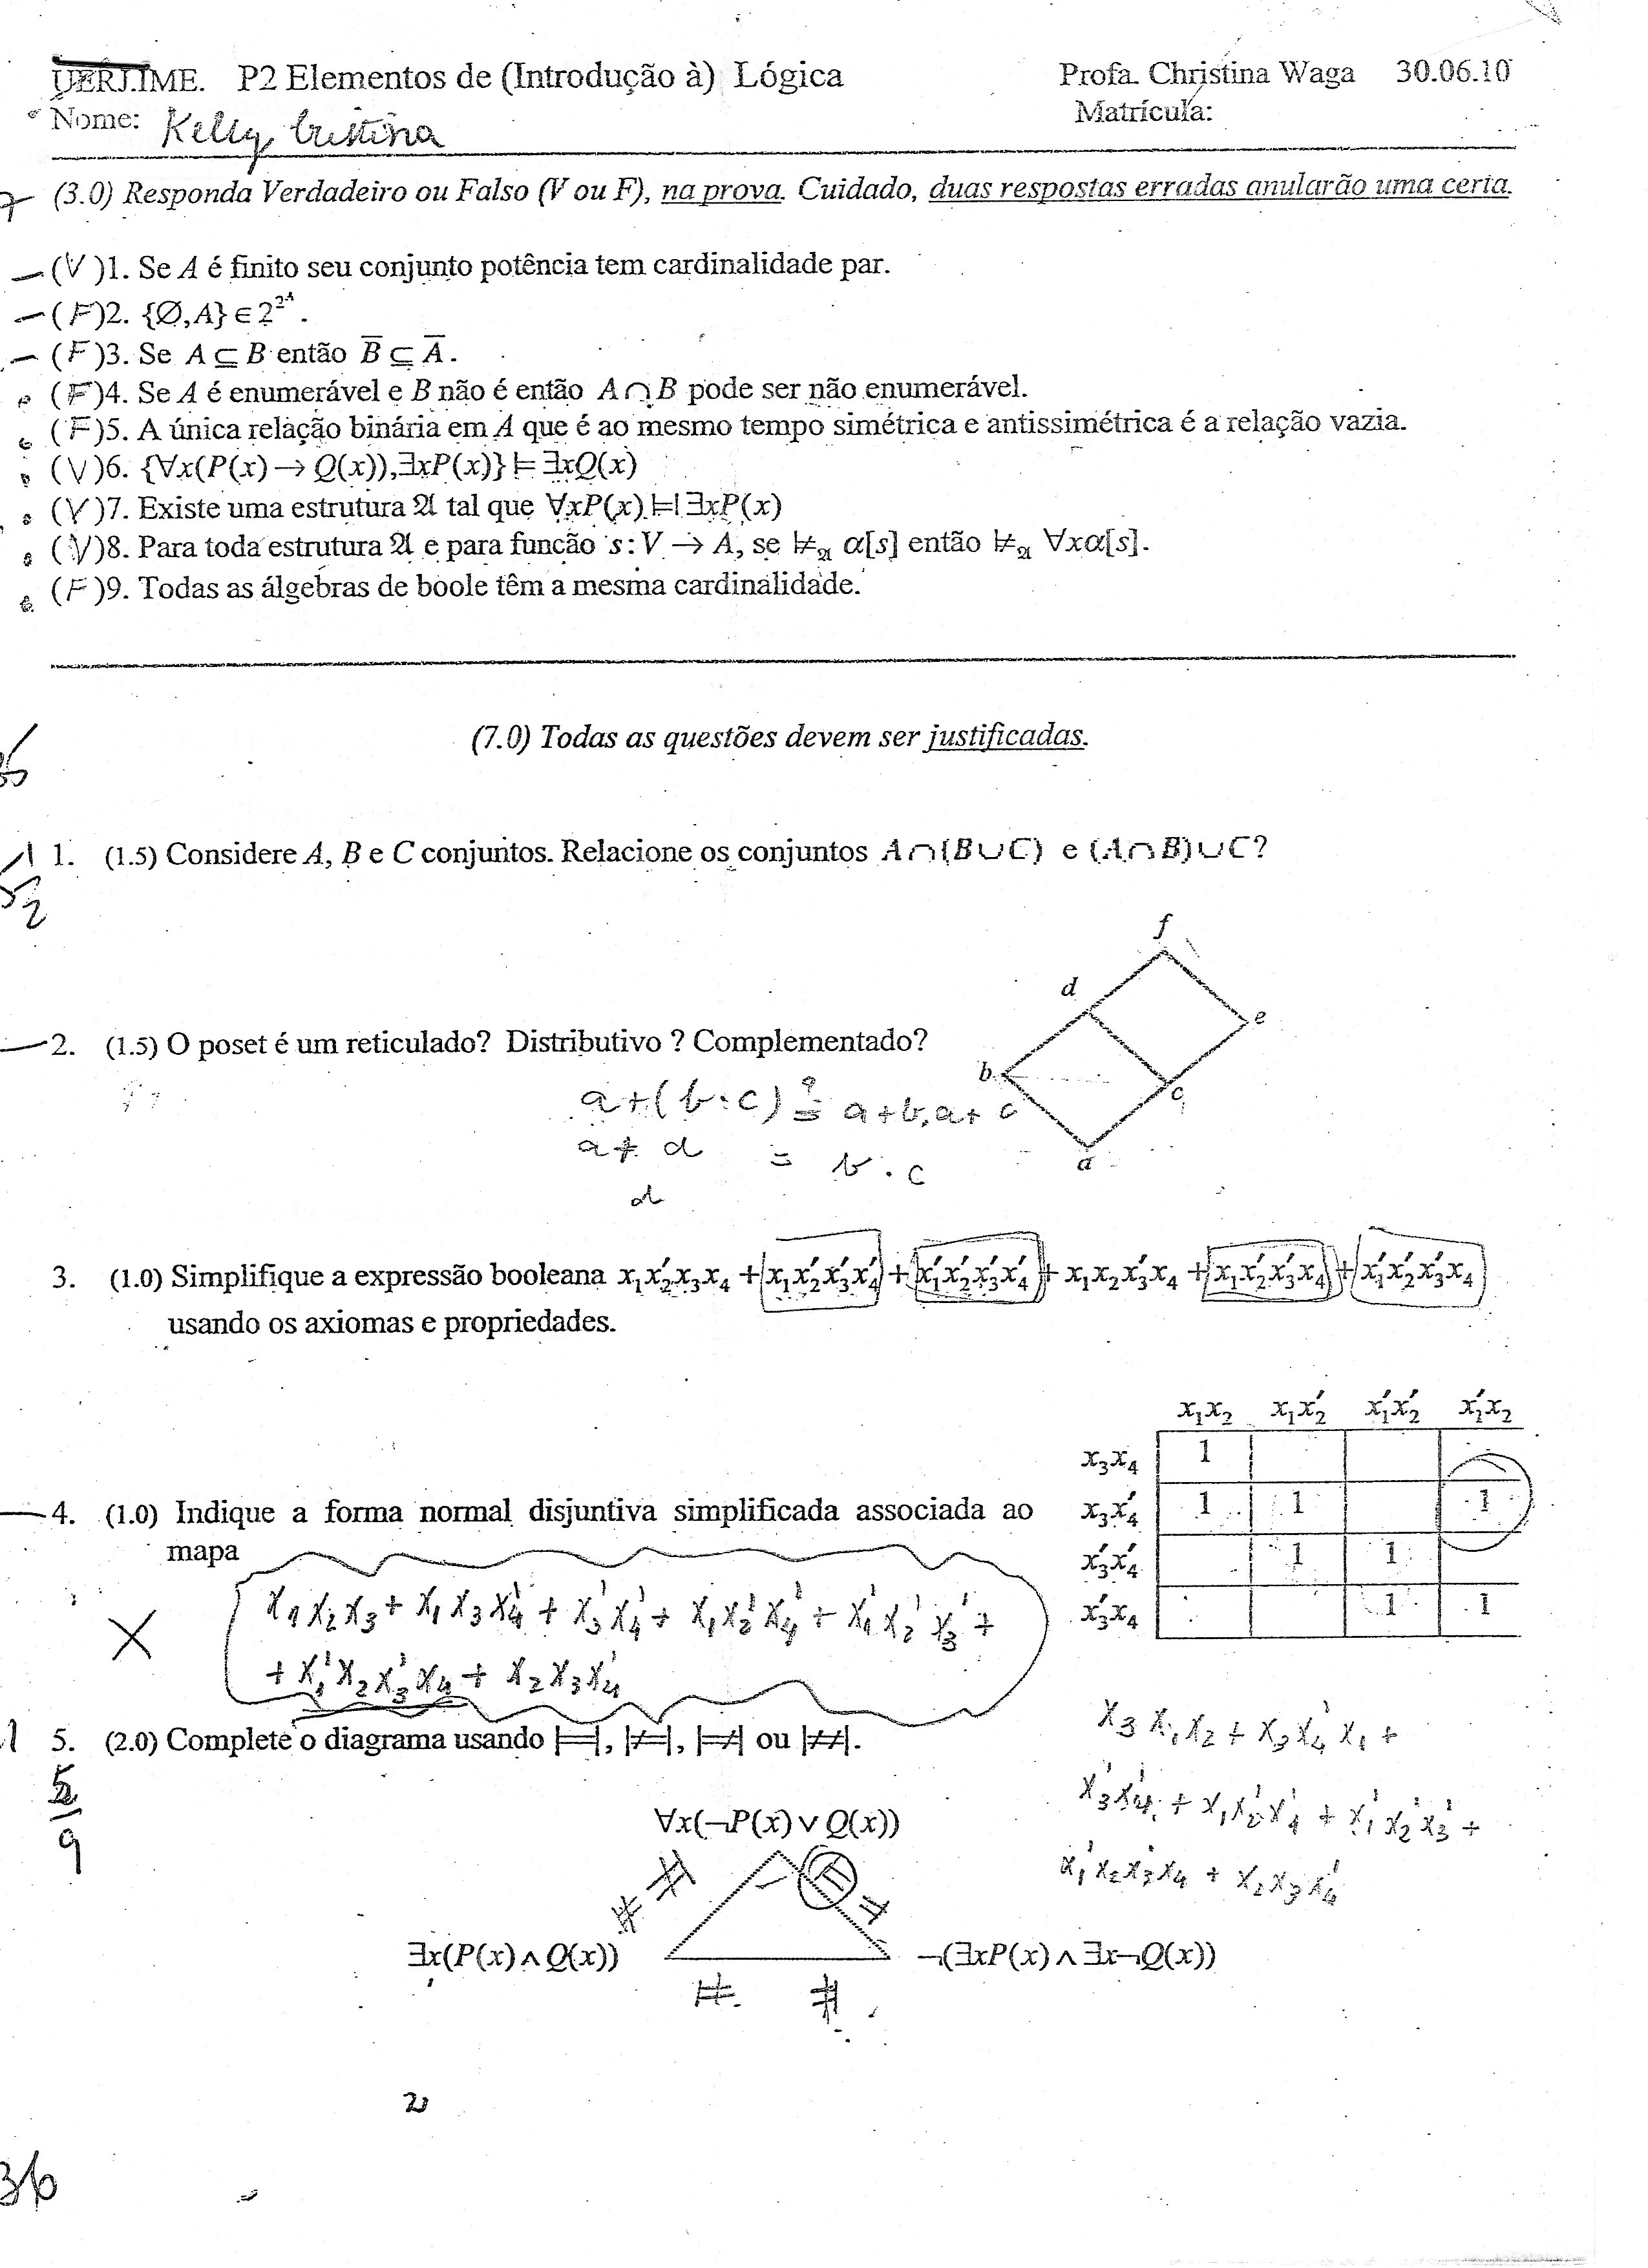 UERJ.IME. P2 Elementos de (Introdução à) Lógica Profa. Christina Waga 30.06.10
Nome: Kelly Cristina Matrícula:
(3.0) Responda Verdadeiro ou Falso (V ou F), na prova. Cuidado, duas respostas erradas anularão uma certa.
(V)1. Se A é finito seu conjunto potência tem cardinalidade par.
(F)2. {∅,A} ∈ 2^{2^A}.
(F)3. Se A ⊆ B então B̅ ⊆ A̅.
(F)4. Se A é enumerável e B não é então A∩B pode ser não enumerável.
(F)5. A única relação binária em A que é ao mesmo tempo simétrica e antissimétrica é a relação vazia.
(V)6. {∀x(P(x) → Q(x)),∃xP(x)} ⊨ ∃xQ(x)
(V)7. Existe uma estrutura 𝔄 tal que ∀xP(x) ⊨| ∃xP(x)
(V)8. Para toda estrutura 𝔄 e para função s:V → A, se ⊭_𝔄 α[s] então ⊭_𝔄 ∀xα[s].
(F)9. Todas as álgebras de boole têm a mesma cardinalidade.
(7.0) Todas as questões devem ser justificadas.
1. (1.5) Considere A, B e C conjuntos. Relacione os conjuntos A∩(B∪C) e (A∩B)∪C?
f
d
e
2. (1.5) O poset é um reticulado? Distributivo ? Complementado?
b
c
a
a+(b·c) ≟ a+b,a+c
a+d = b·c
d
3. (1.0) Simplifique a expressão booleana x₁x₂′x₃x₄ + x₁x₂′x₃′x₄′ + x₁′x₂′x₃′x₄′ + x₁x₂x₃′x₄ + x₁x₂′x₃′x₄ + x₁′x₂′x₃′x₄
usando os axiomas e propriedades.
x₁x₂ x₁x₂′ x₁′x₂′ x₁′x₂
x₃x₄ 1
4. (1.0) Indique a forma normal disjuntiva simplificada associada ao
mapa
x₃x₄′ 1 1 1
x₃′x₄′ 1 1
x₃′x₄ 1 1
x₁x₂x₃ + x₁x₃x₄′ + x₃′x₄′ + x₁x₂′x₄′ + x₁′x₂′x₃′ +
+ x₁′x₂x₃′x₄ + x₂x₃x₄′
5. (2.0) Complete o diagrama usando |=|, |≠=|, |=≠| ou |≠≠|.
x₃x₁x₂ + x₃x₄′x₁ +
x₃′x₄′ + x₁x₂′x₄′ + x₁′x₂′x₃′ +
x₁′x₂x₃′x₄ + x₂x₃x₄′
5
9
∀x(¬P(x) ∨ Q(x))
∃x(P(x) ∧ Q(x)) ¬(∃xP(x) ∧ ∃x¬Q(x))
36